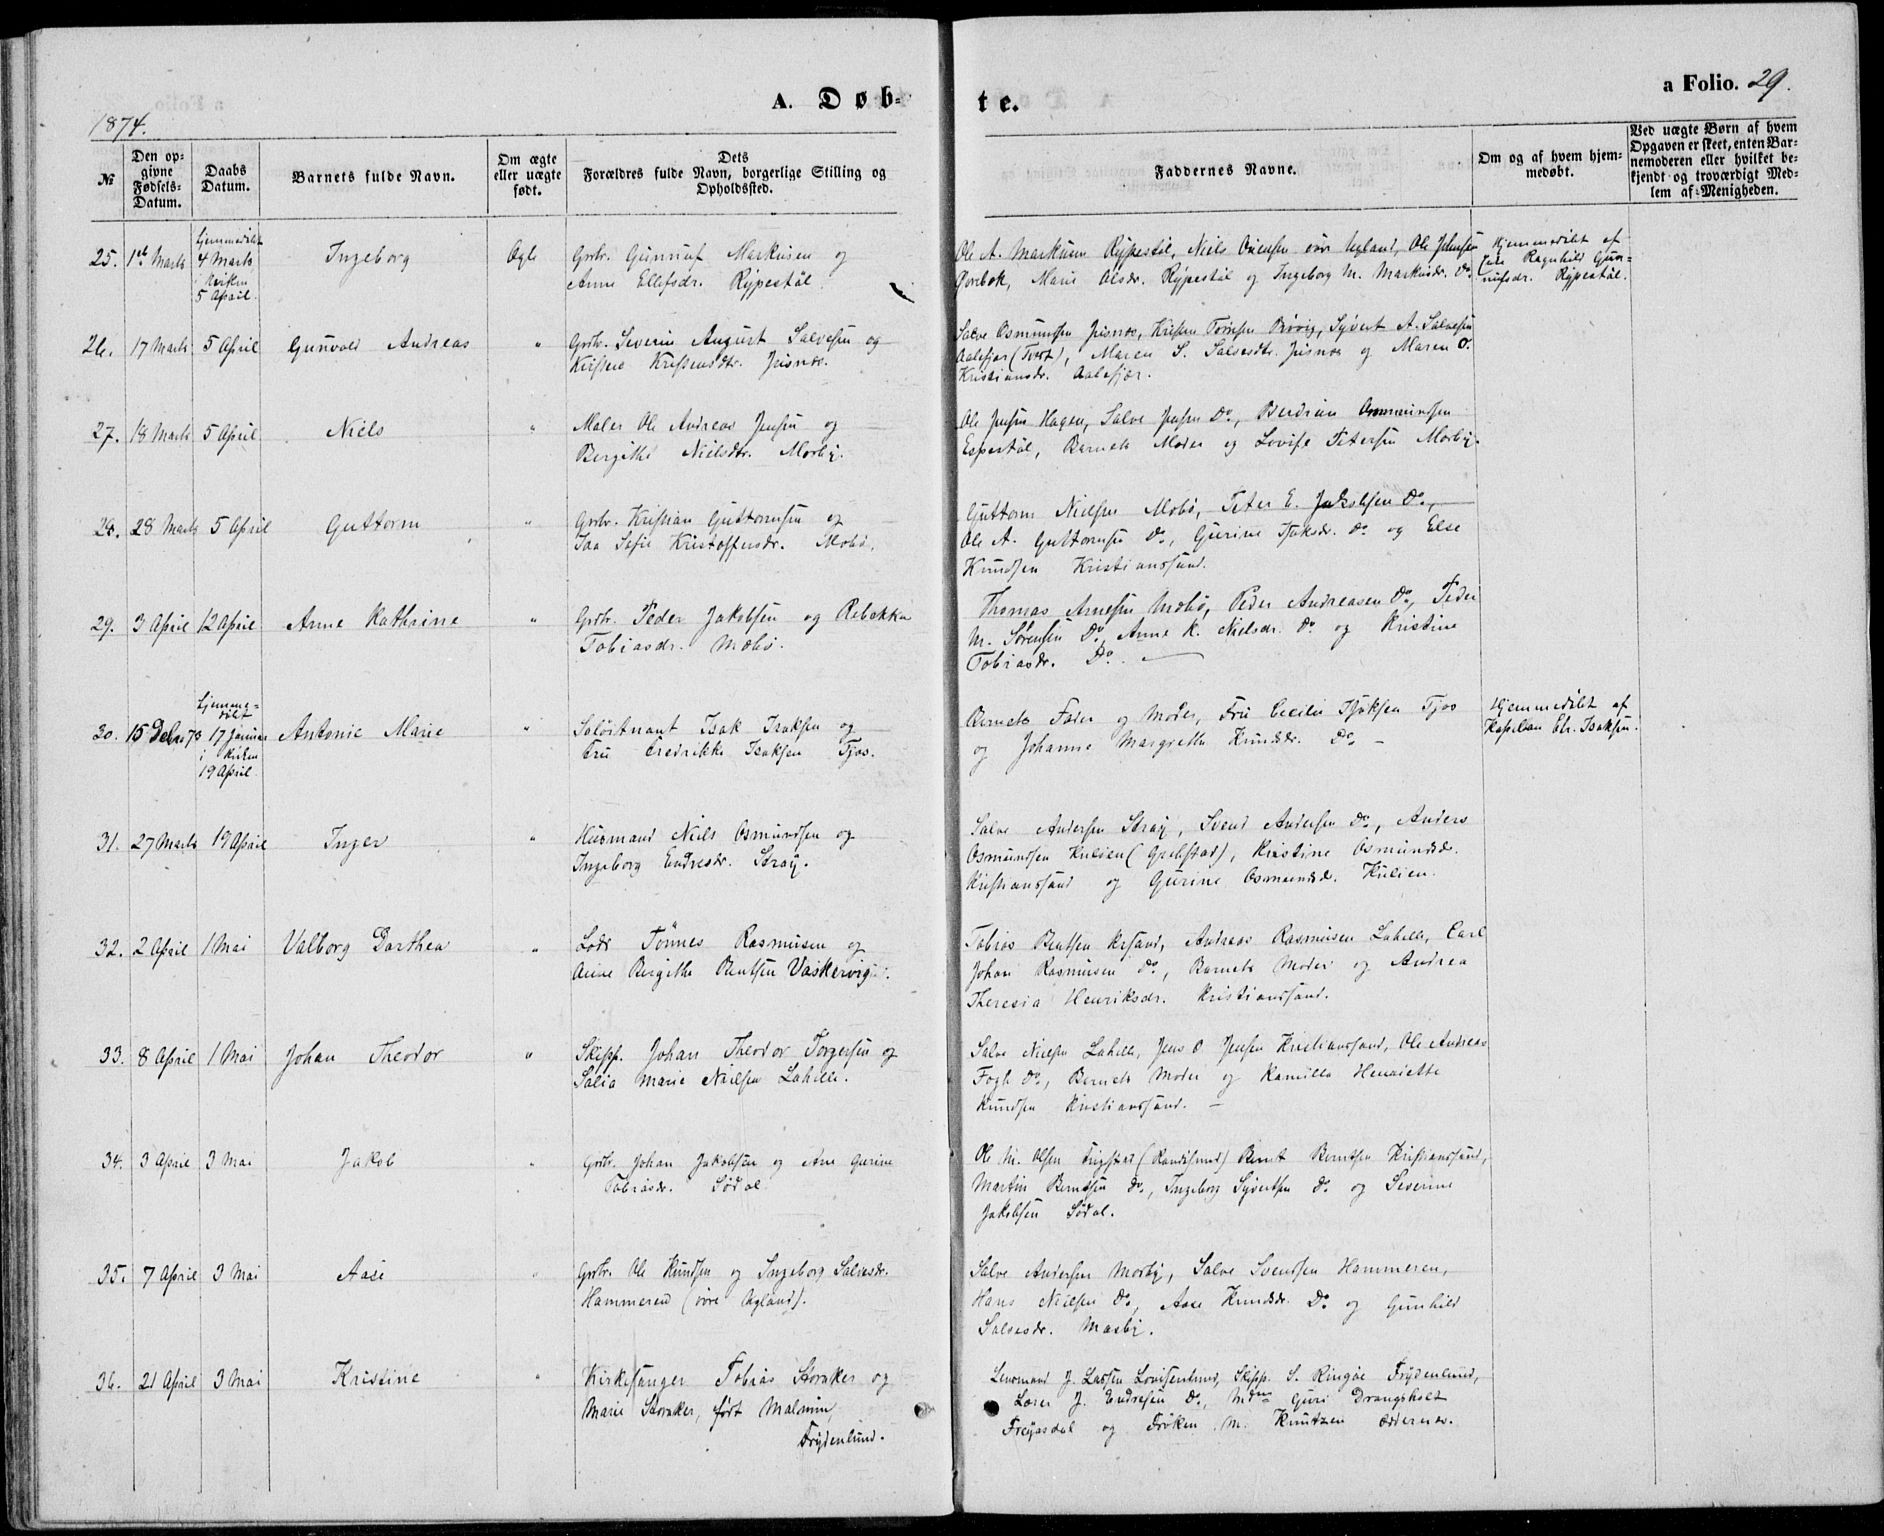 A. Døb-
te.
a Folio. 29.
1874.
№
Den op-
givne
Fødsels-
Datum.
Daabs
Datum.
Barnets fulde Navn.
Om ægte
eller uægte
født.
Dets
Forældres fulde Navn, borgerlige Stilling og
Opholdssted.
Faddernes Navne.
Om og af hvem hjem-
medøbt.
Ved uægte Børn af hvem
Opgaven er skeet, enten Bar-
nemoderen eller hvilket be-
kjendt og troværdigt Med-
lem af Menigheden.
25. 1ste Marts
hjemmedøbt
4 Marts
i Kirken
5 April.
Ingeborg
Ægte
Grbr. Gunnuf Markusen og
Anne Ellefsdr. Rypestøl.
Ole A. Markusen Rypestøl, Niels øvre Ugland, Ole Johnsen
Marie Olsdr. Rypestøl og Ingeborg M. Markusdr. Do.
Hjemmedøbt af
Ragnhild Gun-
nufsdr. Rypestøl.
26. 17 Marts 5 April Gunvald Andreas "
Grbr. Severin August Salvesen og
Kirsten Kristensdtr. Justnes.
Salve Osmundsen Justnes, Syvert A. Salvesen
Aalefjær (Tvet), Maren S. Salvesdtr. Justnes og Maren O.
Kristiansdr. Aalefjær.
27. 18 Marts 5 April Niels "
Maler Ole Andreas Jensen og
Bergithe Nielsdtr. Mosby.
Ole Jensen Hagen, Salve Jensen Do., Berdrun Ommundsen
Espestøl, Barnets Moder og Lovise Petersen Mosby.
28. 28 Marts 5 April Guttorm "
Grbr. Kristian Guttormsen og
Ida Sofie Kristoffersdr. Mobø.
Guttorm Nielsen Mobø, Peter E. Jakobsen Do.,
Ole A. Guttormsen Do., Gurine Isaksdr. Do. og Else
Knudsen Kristianssand.
29. 3 April 12 April Anne Kathrine "
Grbr. Peder Jakobsen og Rebekka
Tobiasdr. Mobø.
Thomas Arnesen Mobø, Peder Andreasen Do., Peder
M. Sørensen Do., Anne K. Nielsdr. Do. og Kristine
Tobiasdr. Do.
30. 15 Debr 73
hjemme-
døbt
17 Januar
i Kirken
19 April
Antonie Marie "
Isak Isaksen og
Fru Fredrikke Isaksen Tjos.
Barnets Fader og Moder, Fru Cecilie Isaksen Tjos
og Johanne Margrethe Knudsdr. Do.
Hjemmedøbt af
Kapellan Chr. Isaksen.
31. 27 Marts 19 April Inger "
Husmand Niels Osmundsen og
Ingeborg Endresdr. Stray.
Salve Andersen Stray, Svend Andersen Do., Anders
Osmundsen Kulien (Grebstad), Kristine Osmundsd.
Kristianssand og Gurine Osmundsd. Kulien.
32. 2 April 1 Mai Valborg Dorthea "
Lods Tønnes Rasmusen og
Anne Bergithe Bentsen Vaskervig.
Tobias Bentsen Krsand, Andreas Rasmusen Lahelle, Carl
Johan Rasmusen Do., Barnets Moder og Andrea
Theresia Henriksdr. Kristianssand.
33. 8 April 1 Mai Johan Theodor "
Skipp. Johan Theodor Torgersen og
Salia Marie Nielsen Lahelle.
Salve Nielsen Lahelle, Jens O Jensen Kristianssand, Ole Andreas
Fogh Do., Barnets Moder og Kamilla Henriette
Knudsen Kristianssand.
34. 3 April 3 Mai Jakob "
Grbr. Johan Jakobsen og Ane Gurine
Tobiasdr. Sødal.
Ole M. Olsen Frigstad (Randøsund) Bernt Berntsen Kristianssand,
Martin Berntsen Do., Ingeborg Syvertsen Do. og Severine
Jakobsen Sødal.
35. 7 April 3 Mai Aase "
Grbr. Ole Knudsen og Ingeborg Salvesdr.
Hammeren (øvre Ugland).
Salve Andersen Mosby, Salve Svendsen Hammeren,
Hans Nielsen Do., Aase Knudsdr. Do. og Gunhild
Salvesdr. Mosby.
36. 21 April 3 Mai Kristine "
Kirkesanger Tobias Storaker og
Marie Storaker, født Malmin,
Frydenlund.
Lensmand J. Lassen Lovisenlund, Skipp. S. Ringøe Frydenlund,
Lærer J. Endresen Do., Mdme Guri Drangsholt
Frøjasdal og Frøken M. Knutzen Oddernes.